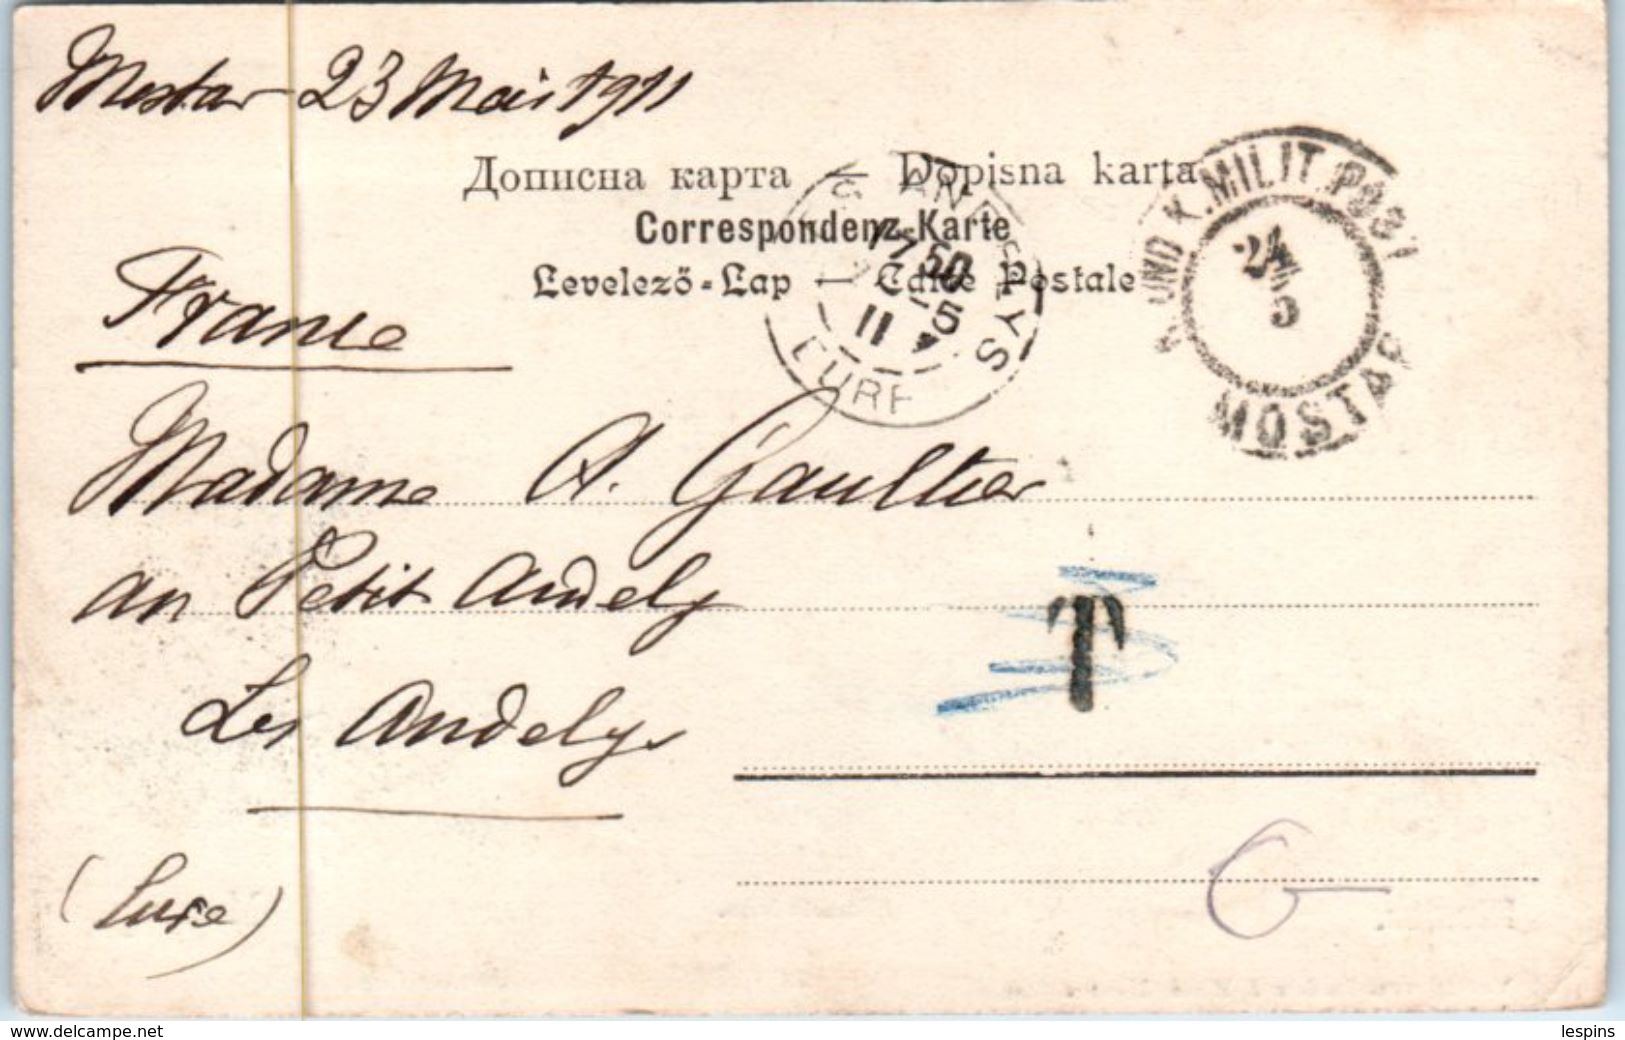 Mostar 23 Mai 1911
Дописна карта — Dopisna karta
Correspondenz-Karte
Levelező-Lap — Carte Postale
K. UND K. MILIT. POST
24/5
MOSTAR
LES ANDELYS
17 50
-5
11
EURE
France
Madame A. Gaultier
au Petit Andely
Les Andelys
(Eure)
T
www.delcampe.net
lespins